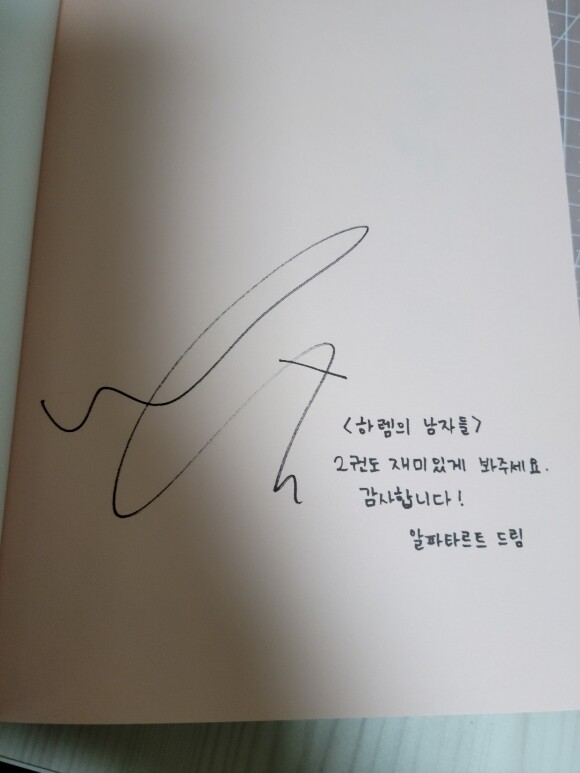 <하렘의 남자들>
2권도 재미있게 봐주세요.
감사합니다!
알파타르트 드림